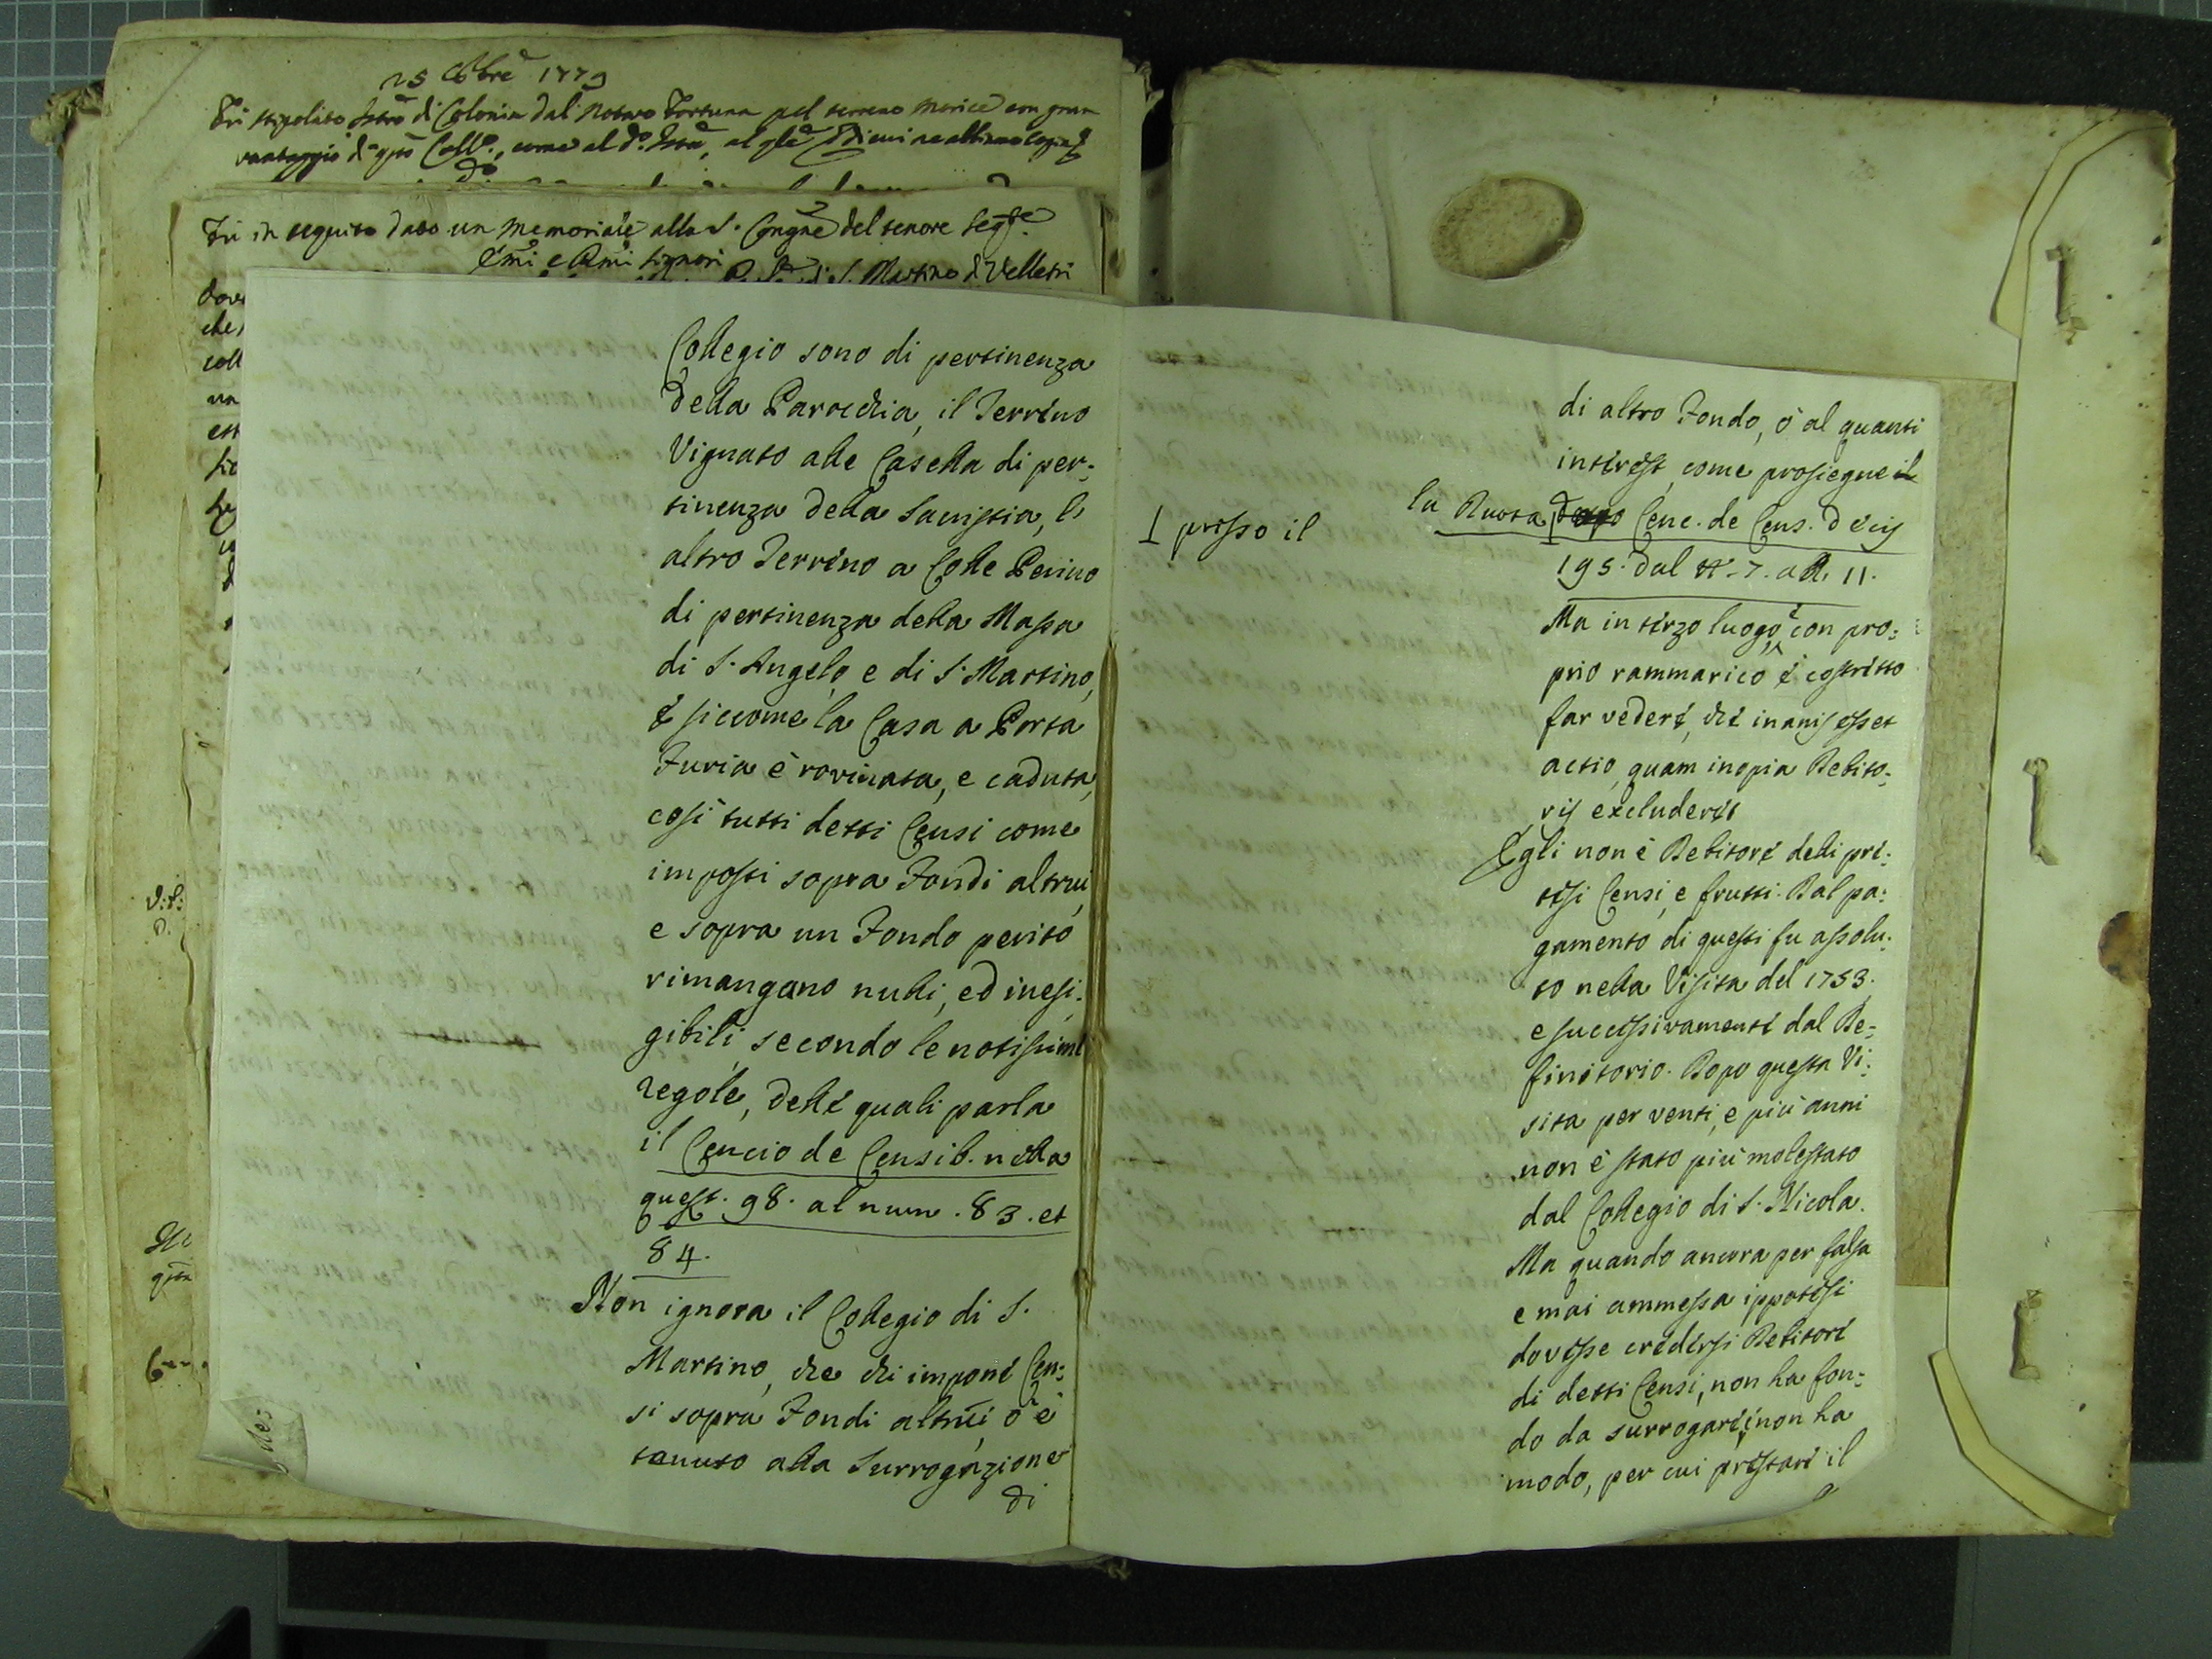 25 8bre 1779
Fù stipolato Istro di Colonia dal Notaro Fortuna pel terreno Morice con gran
vantaggio di qsto Colle., come al do. Istro, al qle di cui ne abbiamo copia
Fù in seguito dato un memoriale alla S. Congne del tenore segte.
Emi e Rmi Signori
di S. Martino di Velletri
Collegio sono di pertinenza
della Parocchia, il Terreno
Vignato alle Casella di per-
tinenza della Sacristia, l'
altro Terreno a Colle Perino
di pertinenza della Massa
di S. Angelo, e di S. Martino,
E siccome la Casa a Porta
Furia è rovinata, e caduta,
così tutti detti Censi come
imposti sopra Fondi altrui,
e sopra un Fondo perito
rimangano nulli, ed inesi-
gibili, secondo le notissime
regole, delle quali parla
il Cencio de Censib. nella
quest. 98. al num. 83. et
84.
Non ignora il Collegio di S.
Martino, che chi impone Cen-
si sopra Fondi altrui, o è
tenuto alla Surrogazione
di
di altro Fondo, ò al quanti
interest, come prosiegue il
la Ruota Cenc. de Cens. decis
presso il
195. dal n. 7. al 11.
Ma in terzo luogo con pro-
prio rammarico è costretto
far vedere, che inanis esset
actio, quam inopia Debito-
ris excluderet
Egli non è Debitore delli pre-
tesi Censi, e frutti. Dal pa-
gamento di questi fu assolu-
to nella Visita del 1753.
e successivamente dal De-
finitorio. Dopo questa Vi-
sita per venti, e più anni
non è stato più molestato
dal Collegio di S. Nicola.
Ma quando ancora per falsa
e mai ammessa ippotesi
dovesse credersi Debitore
di detti Censi, non ha fon-
do da surrogare, non ha
modo, per cui prestare il